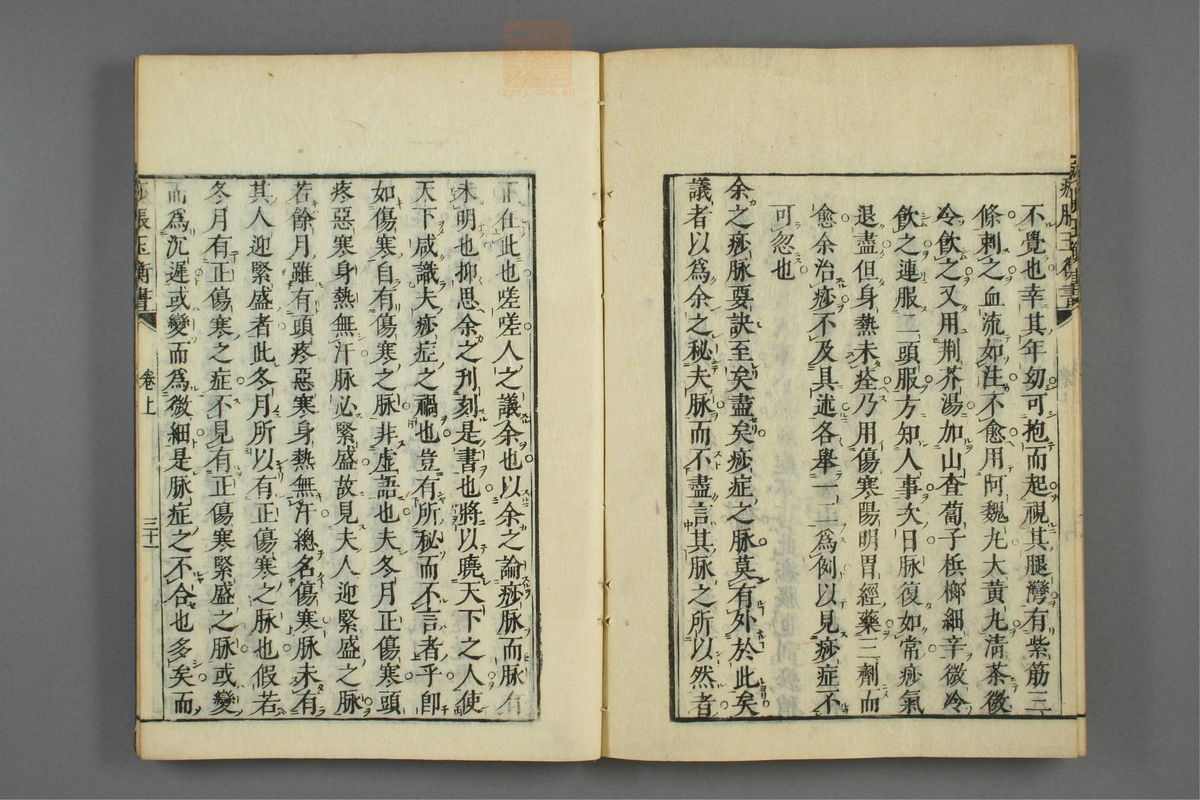 不覺也幸其年幼可抱而起視其腿灣有紫筋三
條刺之血流如注不愈用阿魏丸大黃丸淸茶微
冷飮之又用荆芥湯加山查蔔子梹榔細辛微冷
飮之連服二頭服方知人事次日脉復如常痧氣
退盡但身熱未痊乃用傷寒陽明胃經藥二劑而
愈余治痧不及具述各舉一二爲例以見痧症不
可忽也
余之痧脉要訣至矣盡矣痧症之脉莫有外於此矣
議者以爲余之秘夫脉而不盡言其脉之所以然者
正在此也嗟嗟人之議余也以余之論痧脉而脉有
未明也抑思余之刋刻是書也將以曉天下之人使
天下咸識夫痧症之禍也豈有所秘而不言者乎卽
如傷寒自有傷寒之脉非虛語也夫冬月正傷寒頭
疼惡寒身熱無汗脉必緊盛故見夫人迎緊盛之脉
若餘月雖有頭疼惡寒身熱無汗總名傷寒脉未有
其人迎緊盛者此冬月所以有正傷寒之脉也假若
冬月有正傷寒之症不見有正傷寒緊盛之脉或變
而爲沉遲或變而爲微細是脉症之不合也多矣而
痧脹玉衡書
卷上
三十一